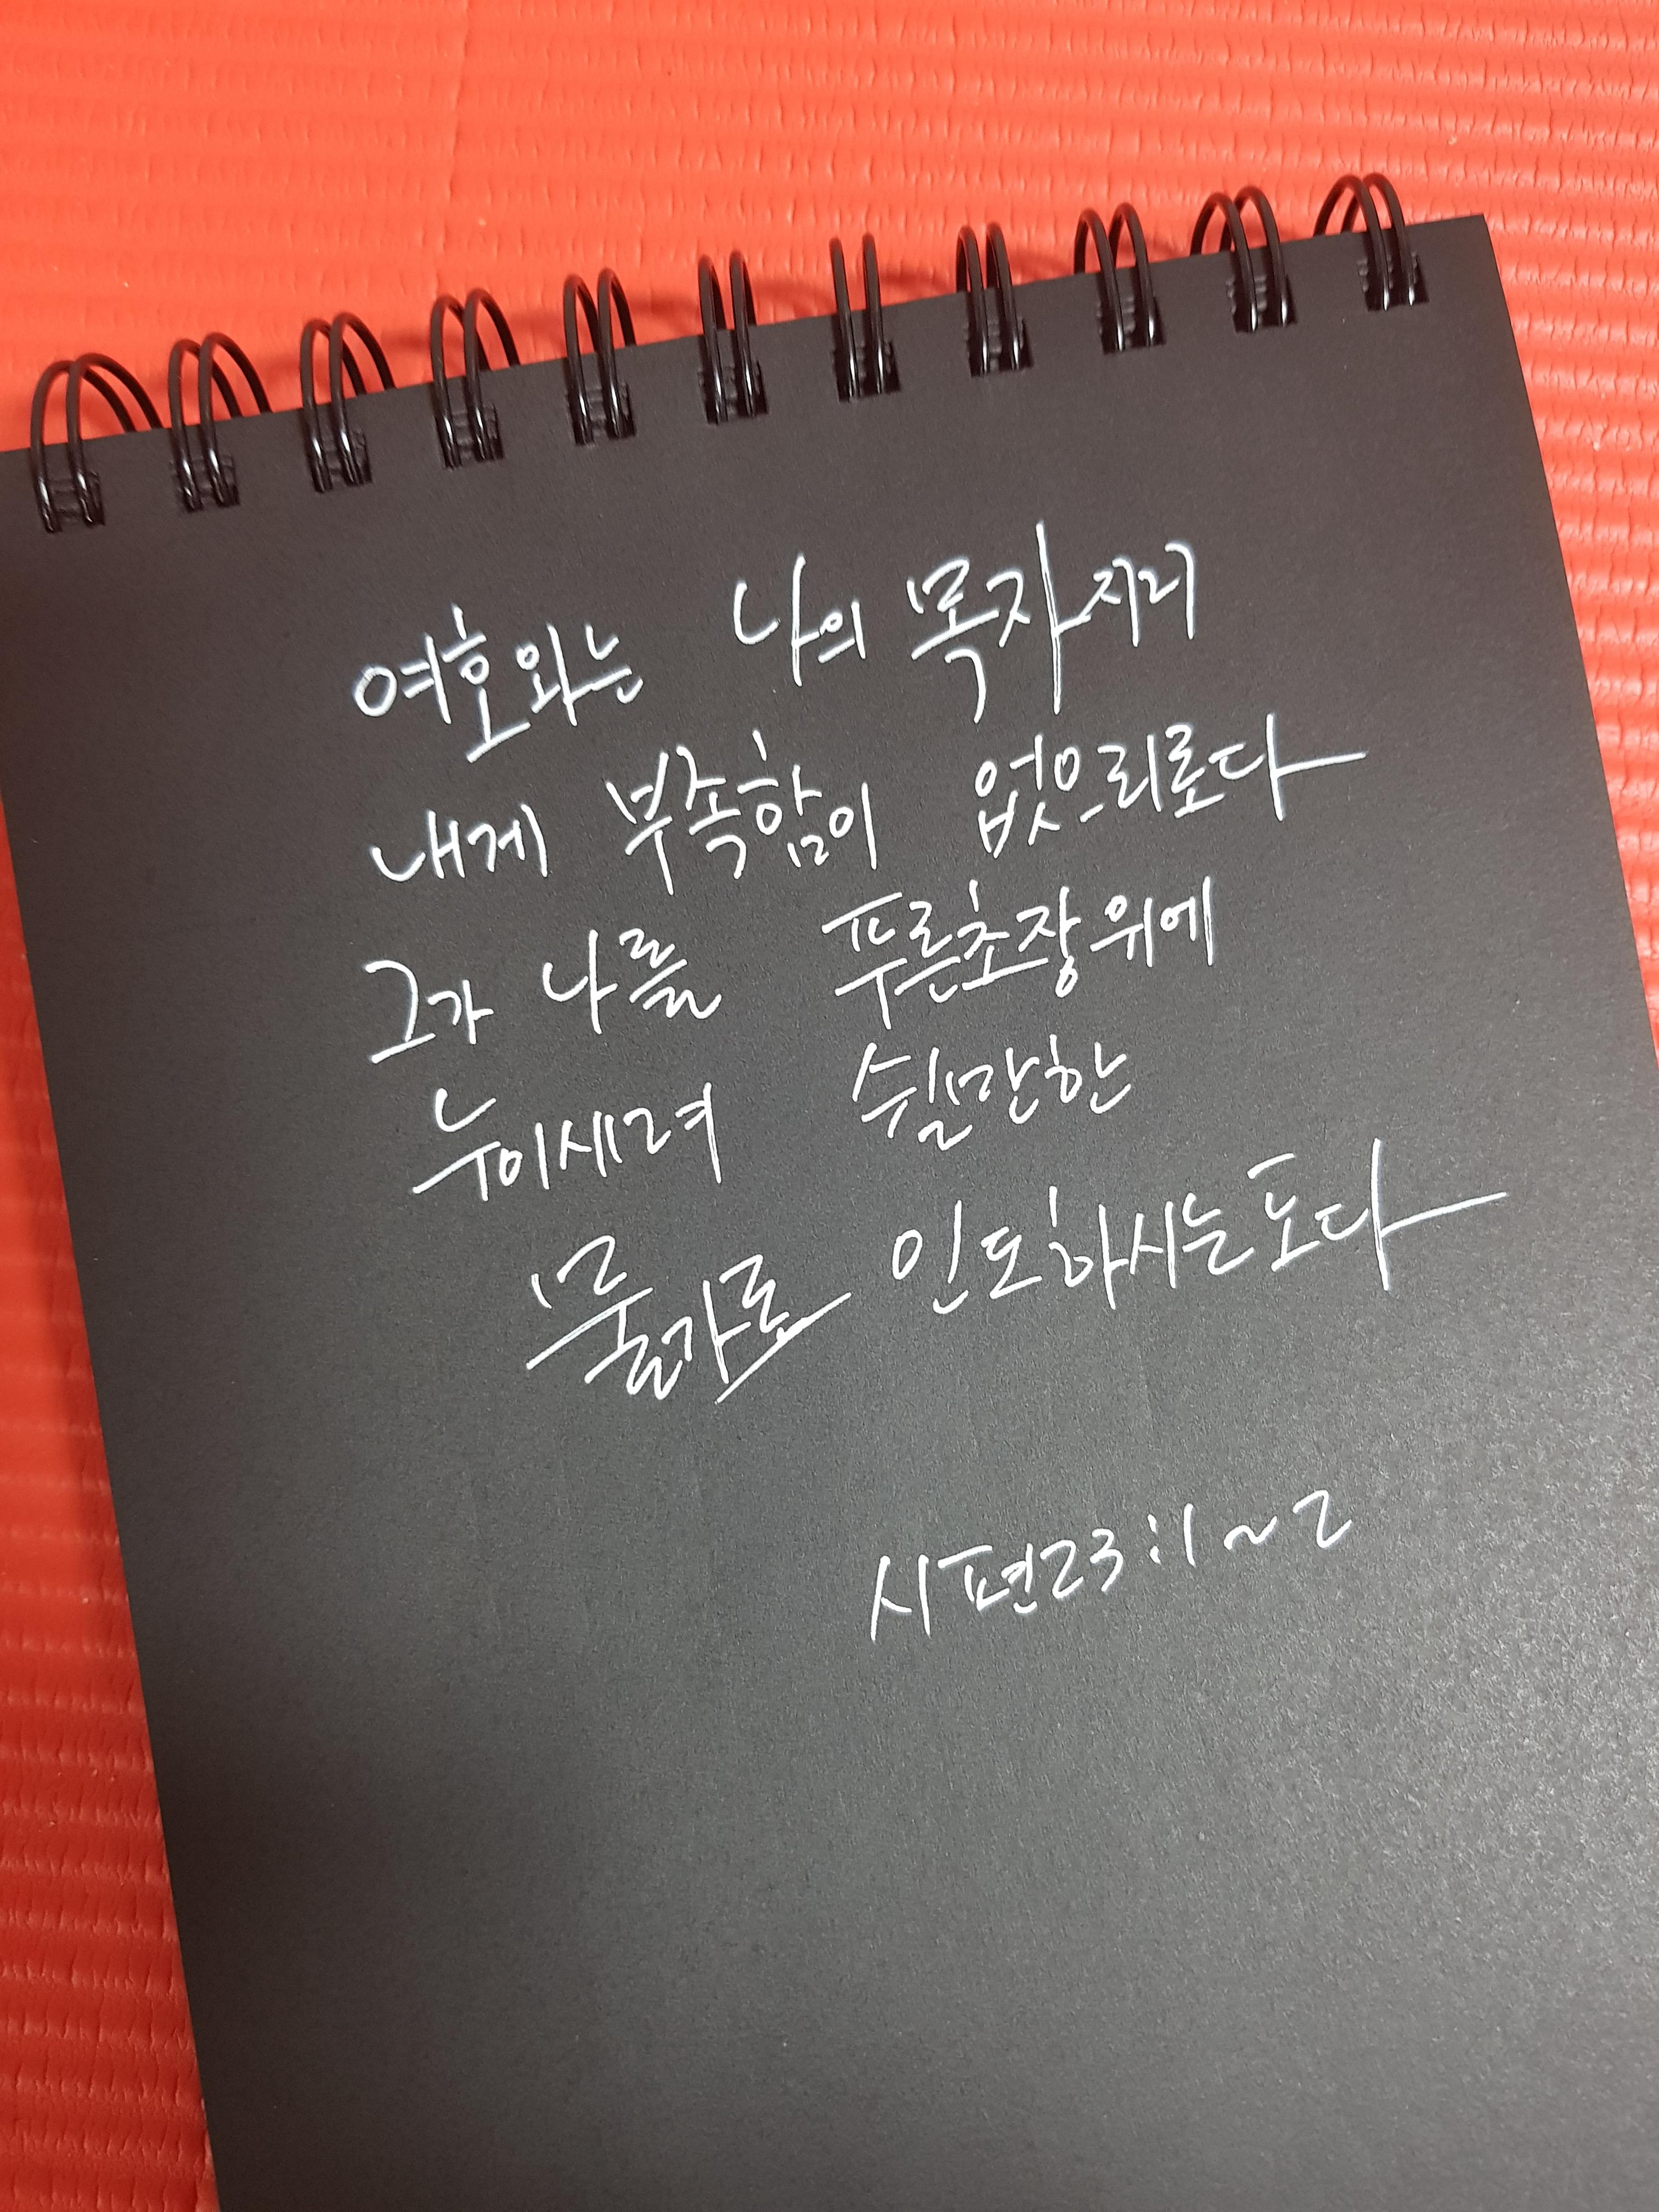 여호와는 나의 목자시리
내게 부족함이 없으리로다
그가 나를 푸른초장위에
누이세려 쉴만한
물가로 인도하시는도다
시편23:1~2